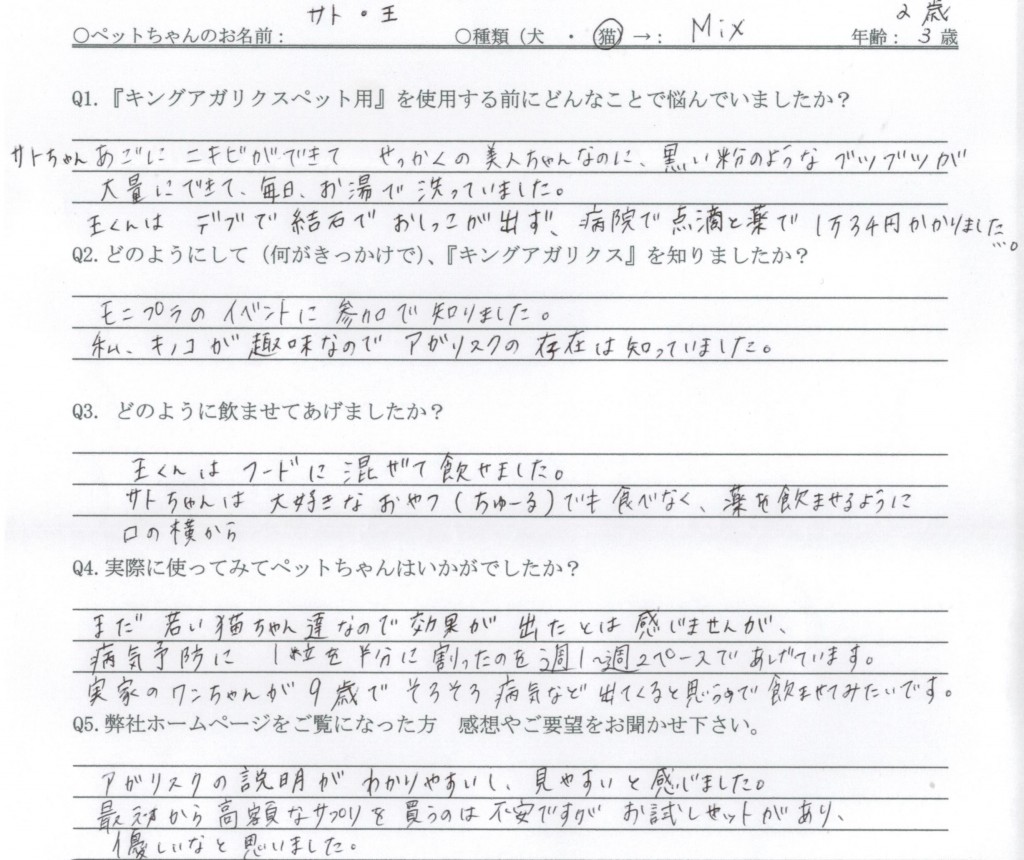 サト・王 2歳
○ペットちゃんのお名前： ○種類（犬 ・ 猫）→： Mix 年齢：3歳
Q1.『キングアガリクスペット用』を使用する前にどんなことで悩んでいましたか？
サトちゃん あごに ニキビができて せっかくの美人ちゃんなのに、黒い粉のようなブツブツが
大量にできて、毎日、お湯で洗っていました。
王くんは デブで結石でおしっこが出ず、病院で点滴と薬で1万3千円かかりました…。
Q2.どのようにして（何がきっかけで）、『キングアガリクス』を知りましたか？
モニプラのイベントに参加で知りました。
私、キノコが趣味なのでアガリスクの存在は知っていました。
Q3. どのように飲ませてあげましたか？
王くんはフードに混ぜて飲せました。
サトちゃんは大好きなおやつ（ちゅーる）でも食べなく、薬を飲ませるように
口の横から
Q4.実際に使ってみてペットちゃんはいかがでしたか？
まだ若い猫ちゃん達なので効果が出たとは感じませんが、
病気予防に 1粒を半分に割ったのを週1〜週2ペースであげています。
実家のワンちゃんが9歳でそろそろ病気など出てくると思うので飲ませてみたいです。
Q5.弊社ホームページをご覧になった方 感想やご要望をお聞かせ下さい。
アガリスクの説明がわかりやすいし、見やすいと感じました。
から高額なサプリを買うのは不安ですが お試しセットがあり、
優しいなと思いました。